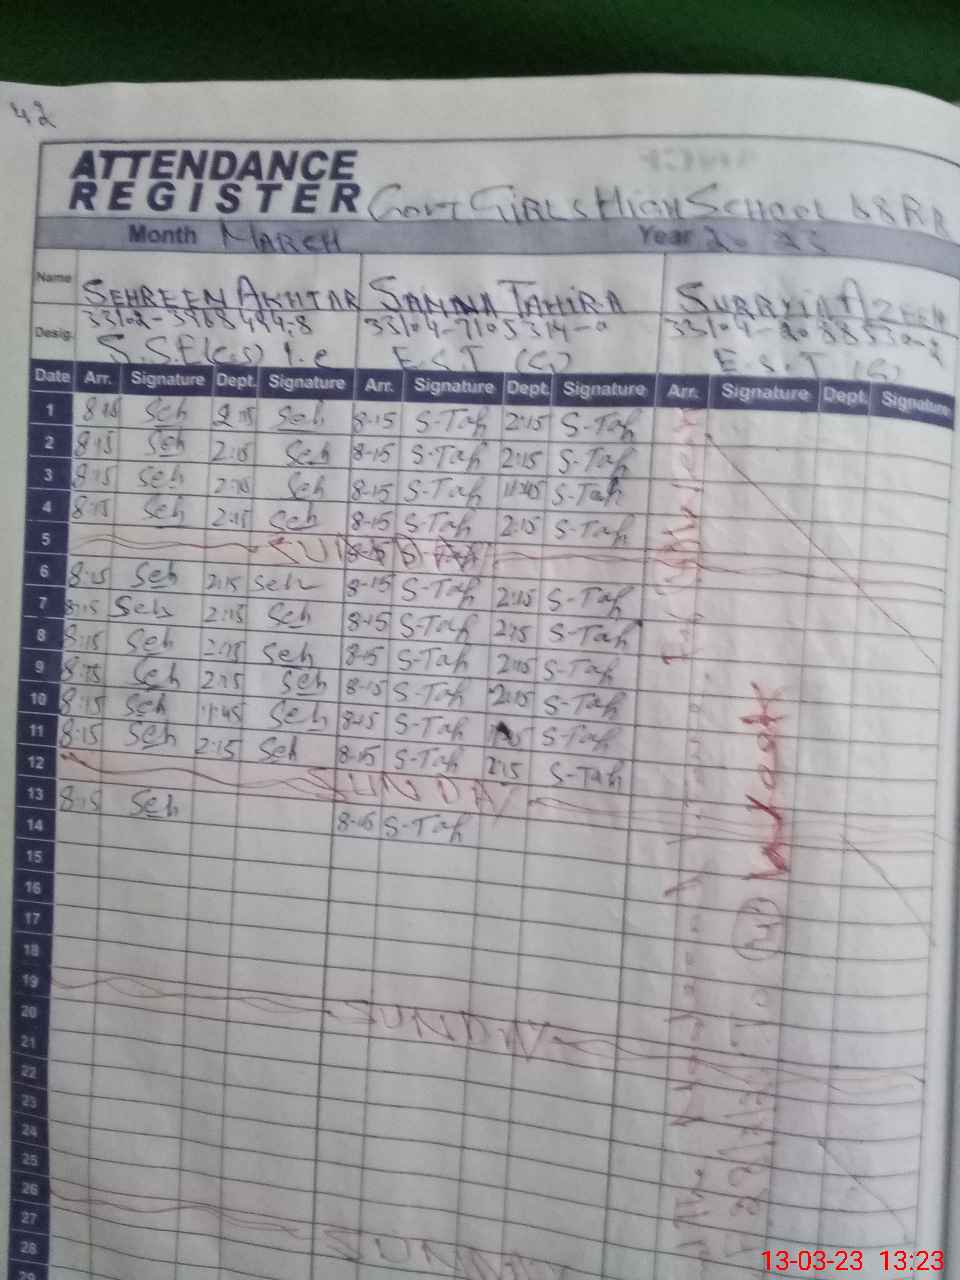 42
ATTENDANCE
REGISTER GOVT GIRLS HIGH SCHOOL 68RB
Month MARCH Year 2023
Name SEHREEN AKHTAR SANNA TAHIRA SURRYIA
Desig.
S.S.E(C.S) I.C E.S.T (G) E.S.T (G)
Date Arr. Signature Dept. Signature Arr. Signature Dept. Signature Arr. Signature Dept. Signature
1 8:15 Seh 2:15 Seh 8-15 S-Tah 2:15 S-Tah
2 8:15 Seh 2:15 Seh 8-15 S-Tah 2:15 S-Tah
3 8:15 Seh 2:15 Seh 8-15 S-Tah 11:45 S-Tah
4 8:15 Seh 2:15 Seh 8-15 S-Tah 2:15 S-Tah
5 SUNDAY
6 8:15 Seh 2:15 Seh 8-15 S-Tah 2:15 S-Tah
7 8:15 Seh 2:15 Seh 8-15 S-Tah 2:15 S-Tah
8 8:15 Seh 2:15 Seh 8-15 S-Tah 2:15 S-Tah
9 8:15 Seh 2:15 Seh 8-15 S-Tah 2:15 S-Tah
10 8:15 Seh 11:45 Seh 8-15 S-Tah S-Tah
11 8:15 Seh 2:15 Seh 8-15 S-Tah 2:15 S-Tah
12 SUNDAY
13 8:15 Seh 8-15 S-Tah
14
15
16
17
18
19 SUNDAY
20
21
22
23
24
25
26 SUNDAY
27
28
29
13-03-23 13:23